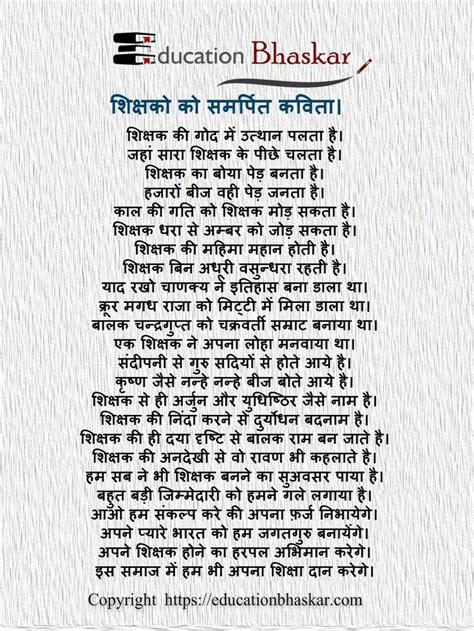 Education Bhaskar
शिक्षको को समर्पित कविता।
शिक्षक की गोद में उत्थान पलता है।
जहां सारा शिक्षक के पीछे चलता है।
शिक्षक का बोया पेड़ बनता है।
हजारों बीज वही पेड़ जनता है।
काल की गति को शिक्षक मोड़ सकता है।
शिक्षक धरा से अम्बर को जोड़ सकता है।
शिक्षक की महिमा महान होती है।
शिक्षक बिन अधूरी वसुन्धरा रहती है।
याद रखो चाणक्य ने इतिहास बना डाला था।
क्रूर मगध राजा को मिट्टी में मिला डाला था।
बालक चन्द्रगुप्त को चक्रवर्ती सम्राट बनाया था।
एक शिक्षक ने अपना लोहा मनवाया था।
संदीपनी से गुरु सदियों से होते आये है।
कृष्ण जैसे नन्हे नन्हे बीज बोते आये है।
शिक्षक से ही अर्जुन और युधिष्ठिर जैसे नाम है।
शिक्षक की निंदा करने से दुर्योधन बदनाम है।
शिक्षक की ही दया दृष्टि से बालक राम बन जाते है।
शिक्षक की अनदेखी से वो रावण भी कहलाते है।
हम सब ने भी शिक्षक बनने का सुअवसर पाया है।
बहुत बड़ी जिम्मेदारी को हमने गले लगाया है।
आओ हम संकल्प करे की अपना फ़र्ज निभायेंगे।
अपने प्यारे भारत को हम जगतगुरु बनायेंगे।
अपने शिक्षक होने का हरपल अभिमान करेगे।
इस समाज में हम भी अपना शिक्षा दान करेगे।
Copyright https://educationbhaskar.com